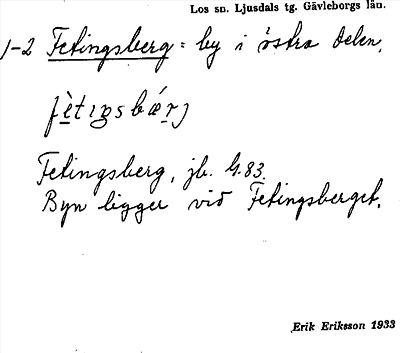 Los sn. Ljusdals tg. Gävleborgs län.
1-2 Fetingsberg = by i östra delen.
fètıŋsbǽrj
Fetingsberg, jb. G.83.
Byn ligger vid Fetingsberget.
Erik Eriksson 1933